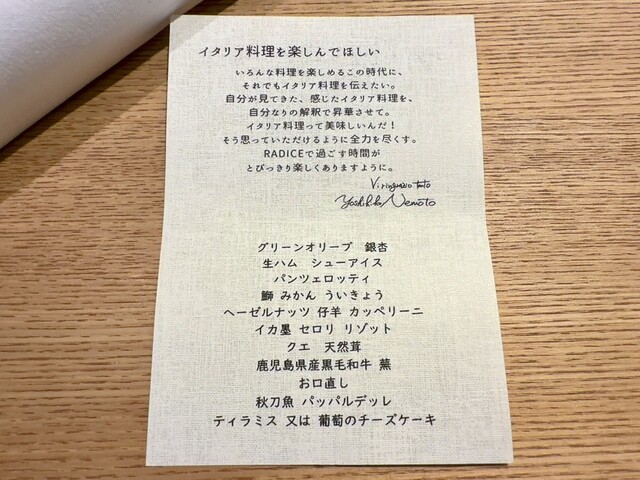 イタリア料理を楽しんでほしい
いろんな料理を楽しめるこの時代に、
それでもイタリア料理を伝えたい。
自分が見てきた、感じたイタリア料理を、
自分なりの解釈で昇華させて。
イタリア料理って美味しいんだ！
そう思っていただけるように全力を尽くす。
RADICEで過ごす時間が
とびっきり楽しくありますように。
Vi ringrazio tanto
Yoshihiko Nemoto
グリーンオリーブ 銀杏
生ハム シューアイス
パンツェロッティ
鰤 みかん ういきょう
ヘーゼルナッツ 仔羊 カッペリーニ
イカ墨 セロリ リゾット
クエ 天然茸
鹿児島県産黒毛和牛 蕪
お口直し
秋刀魚 パッパルデッレ
ティラミス 又は 葡萄のチーズケーキ